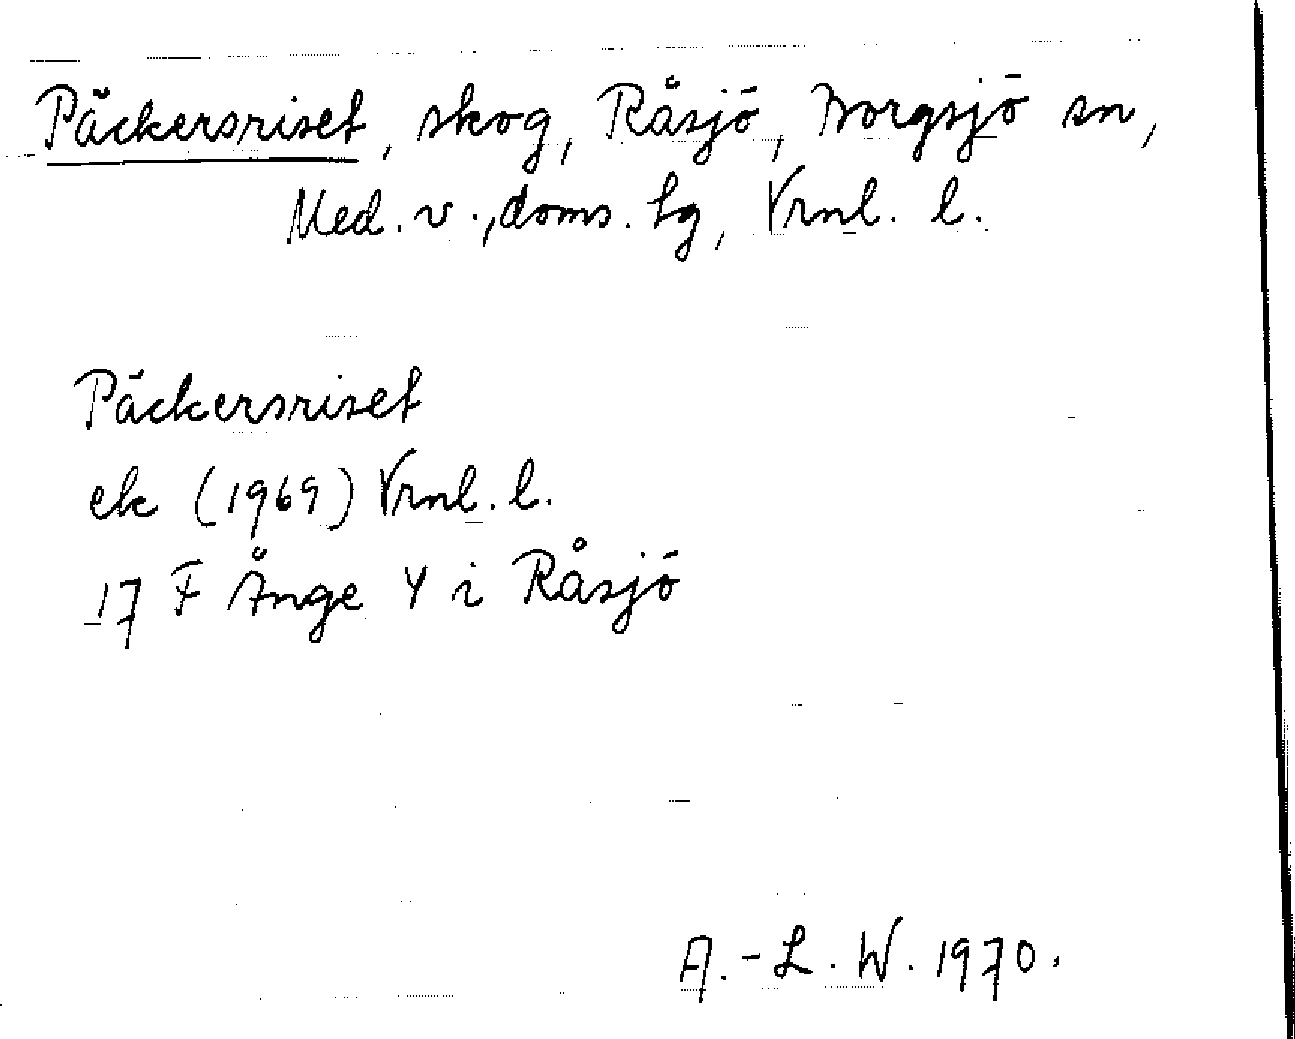 Päckersriset, skog, Råsjö, Borgsjö sn,
Med. v., doms. lg, Vrnl. l.
Päckersriset
ek (1969) Vrnl. l.
17 F Ånge Y i Råsjö
A.-L. W. 1970.